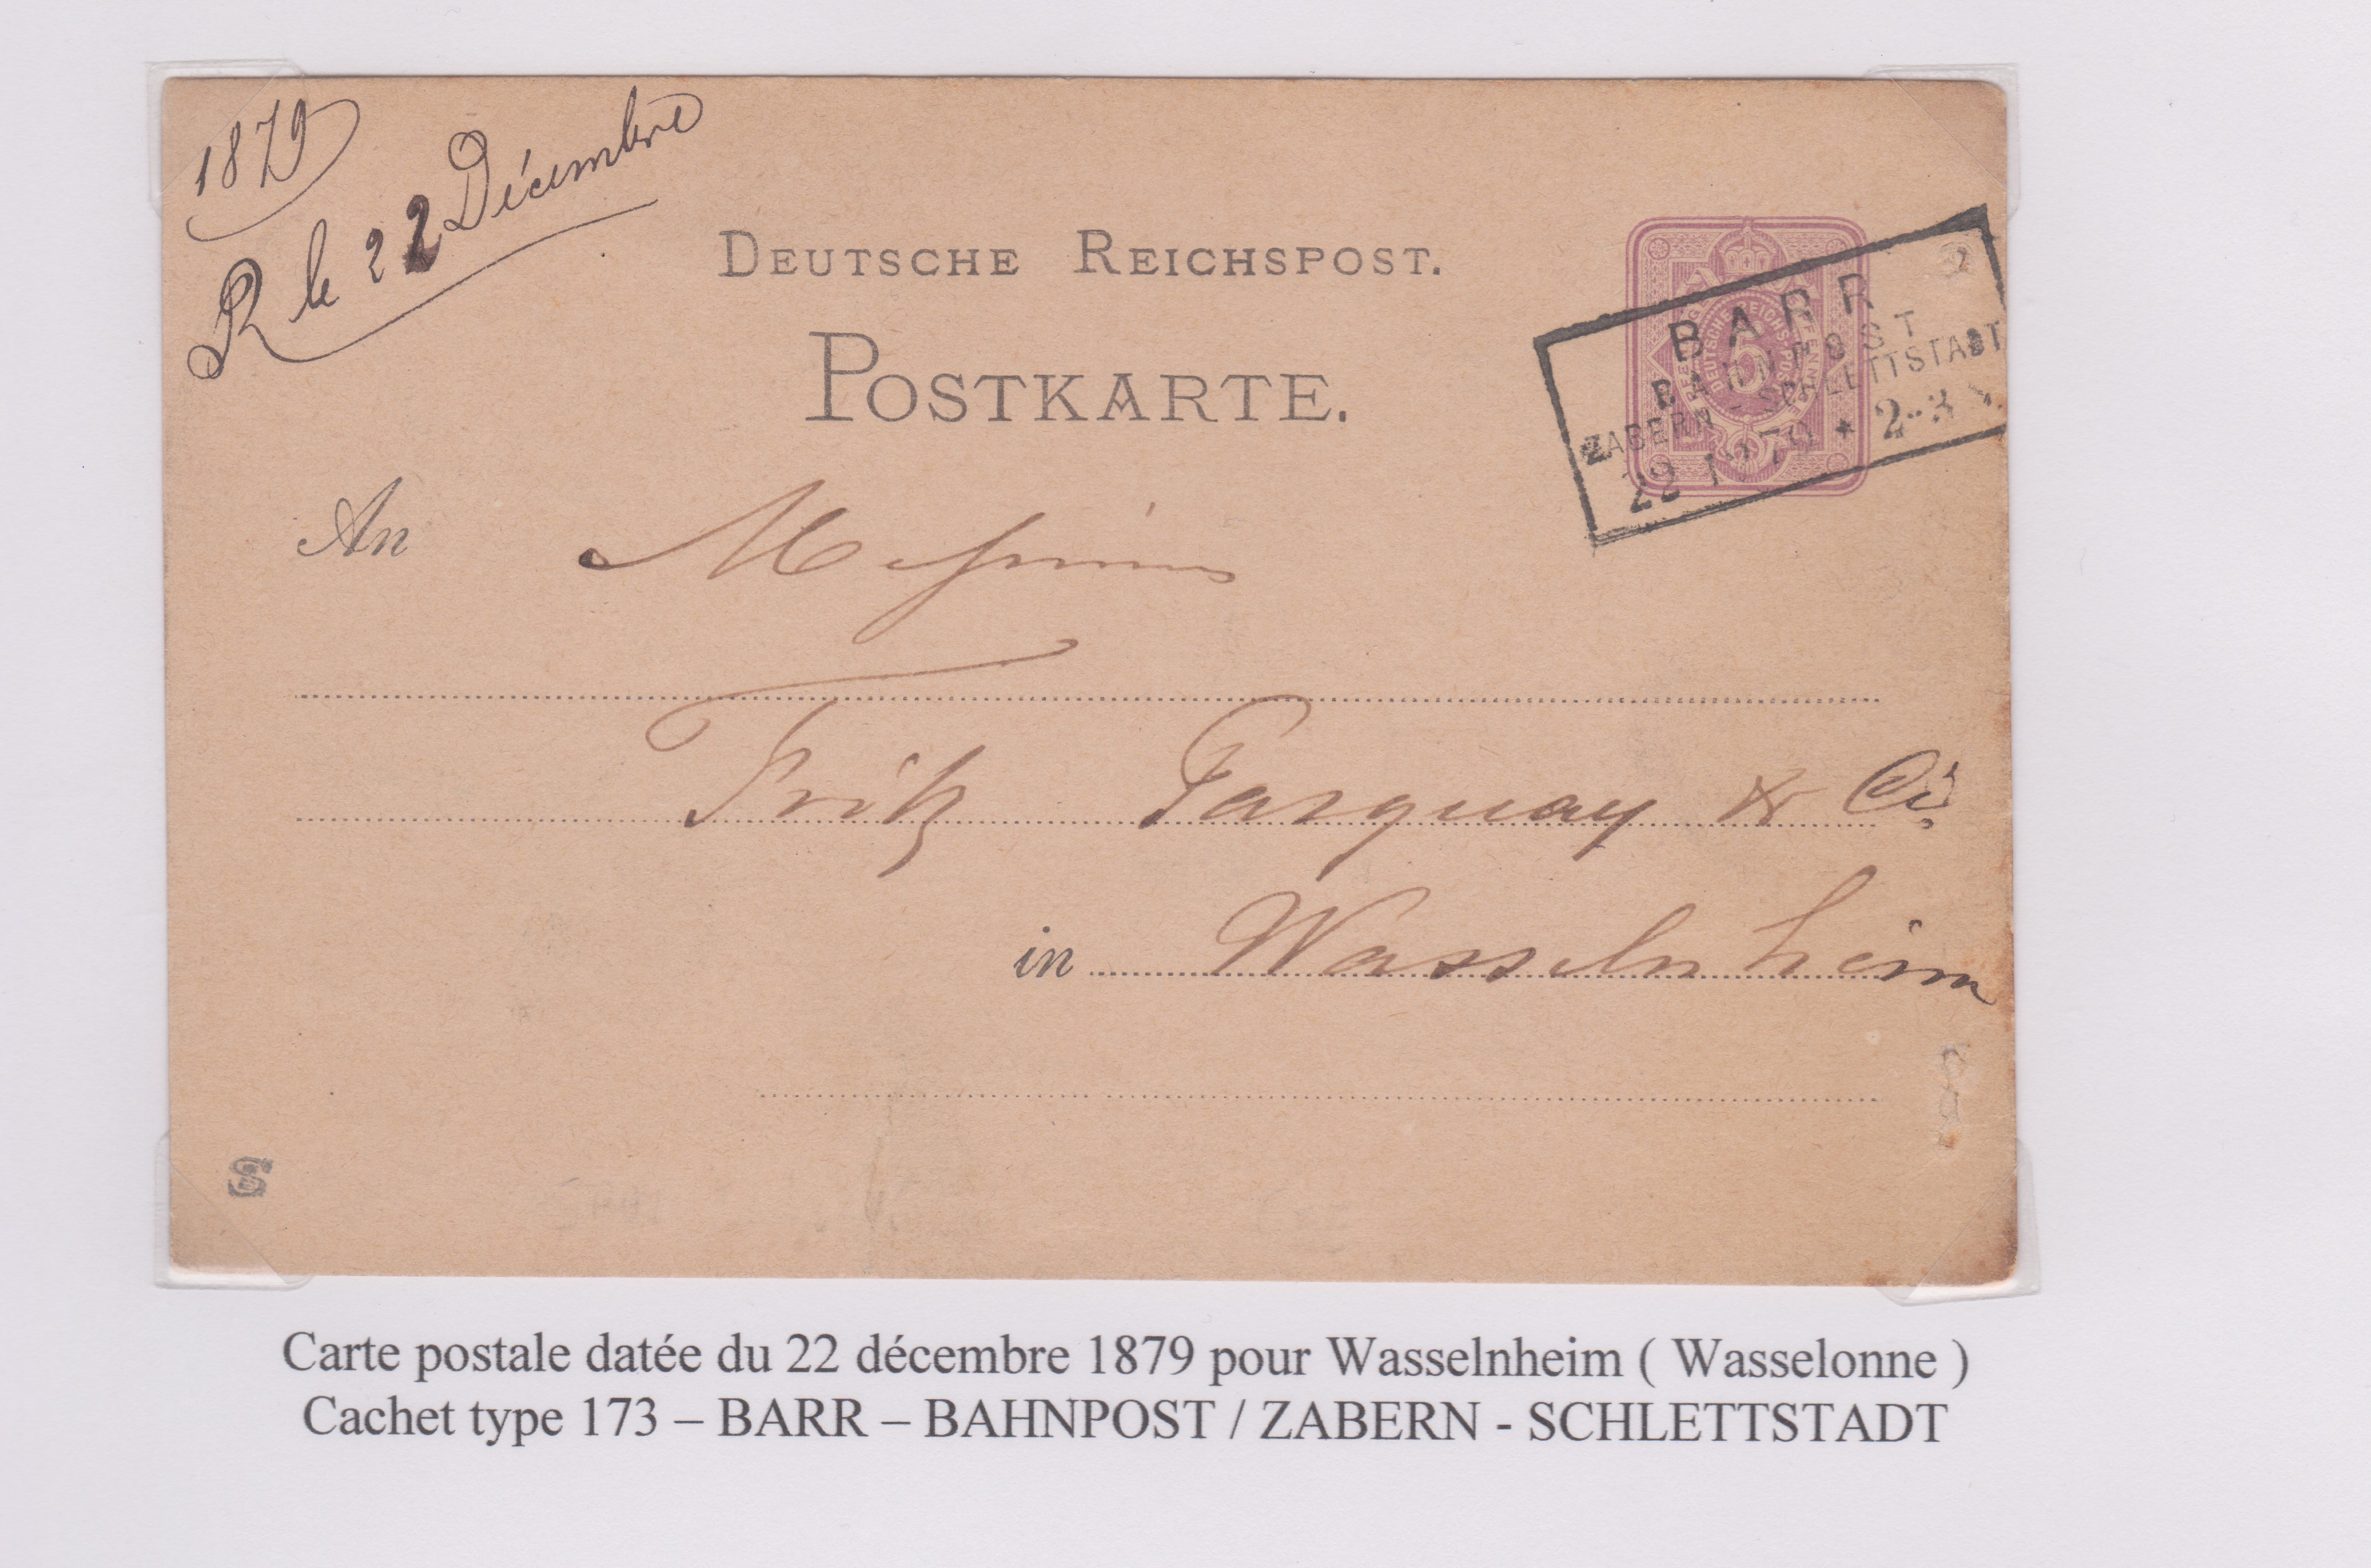 1879
R le 22 Décembre
DEUTSCHE REICHSPOST.
POSTKARTE.
BARR
BAHNPOST
ZABERN - SCHLETTSTADT
22 12 79 * 2-3
5
An Messieurs
Fritz Pasquay & Cie
in Wasselnheim
Carte postale datée du 22 décembre 1879 pour Wasselnheim ( Wasselonne )
Cachet type 173 – BARR – BAHNPOST / ZABERN - SCHLETTSTADT